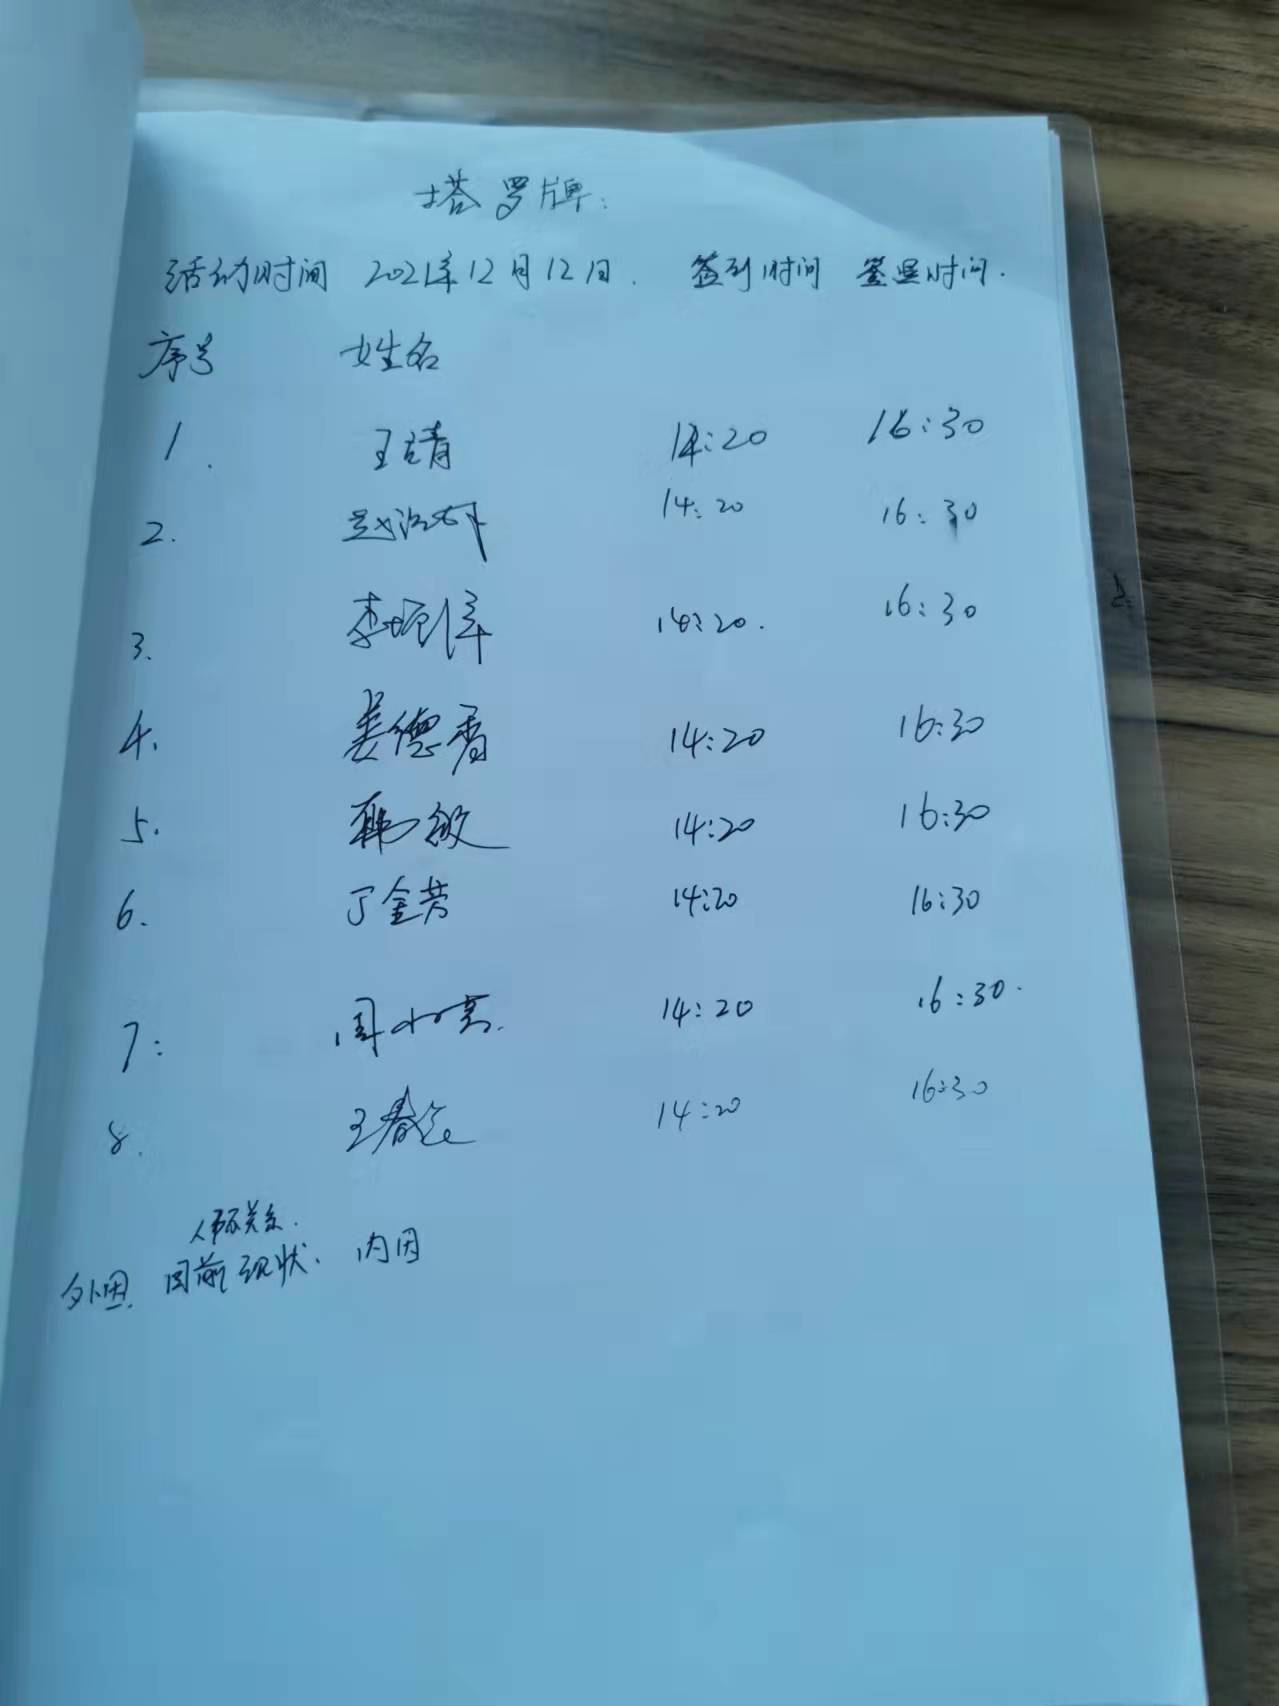 塔罗牌:
活动时间 2021年12月12日. 签到时间 签退时间.
序号 姓名
1. 王靖 14:20 16:30
2. 赵 14:20 16:30
3. 李 14:20. 16:30
4. 姜德香 14:20 16:30
5. 韩敏 14:20 16:30
6. 丁金芳 14:20 16:30
7: 周 14:20 16:30.
8. 王春 14:20 16:30
人际关系.
外因. 目前现状. 内因